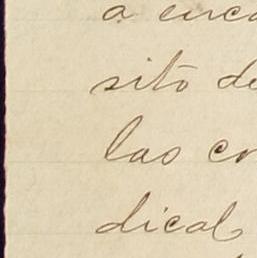 a enca
sito de
las co
dical